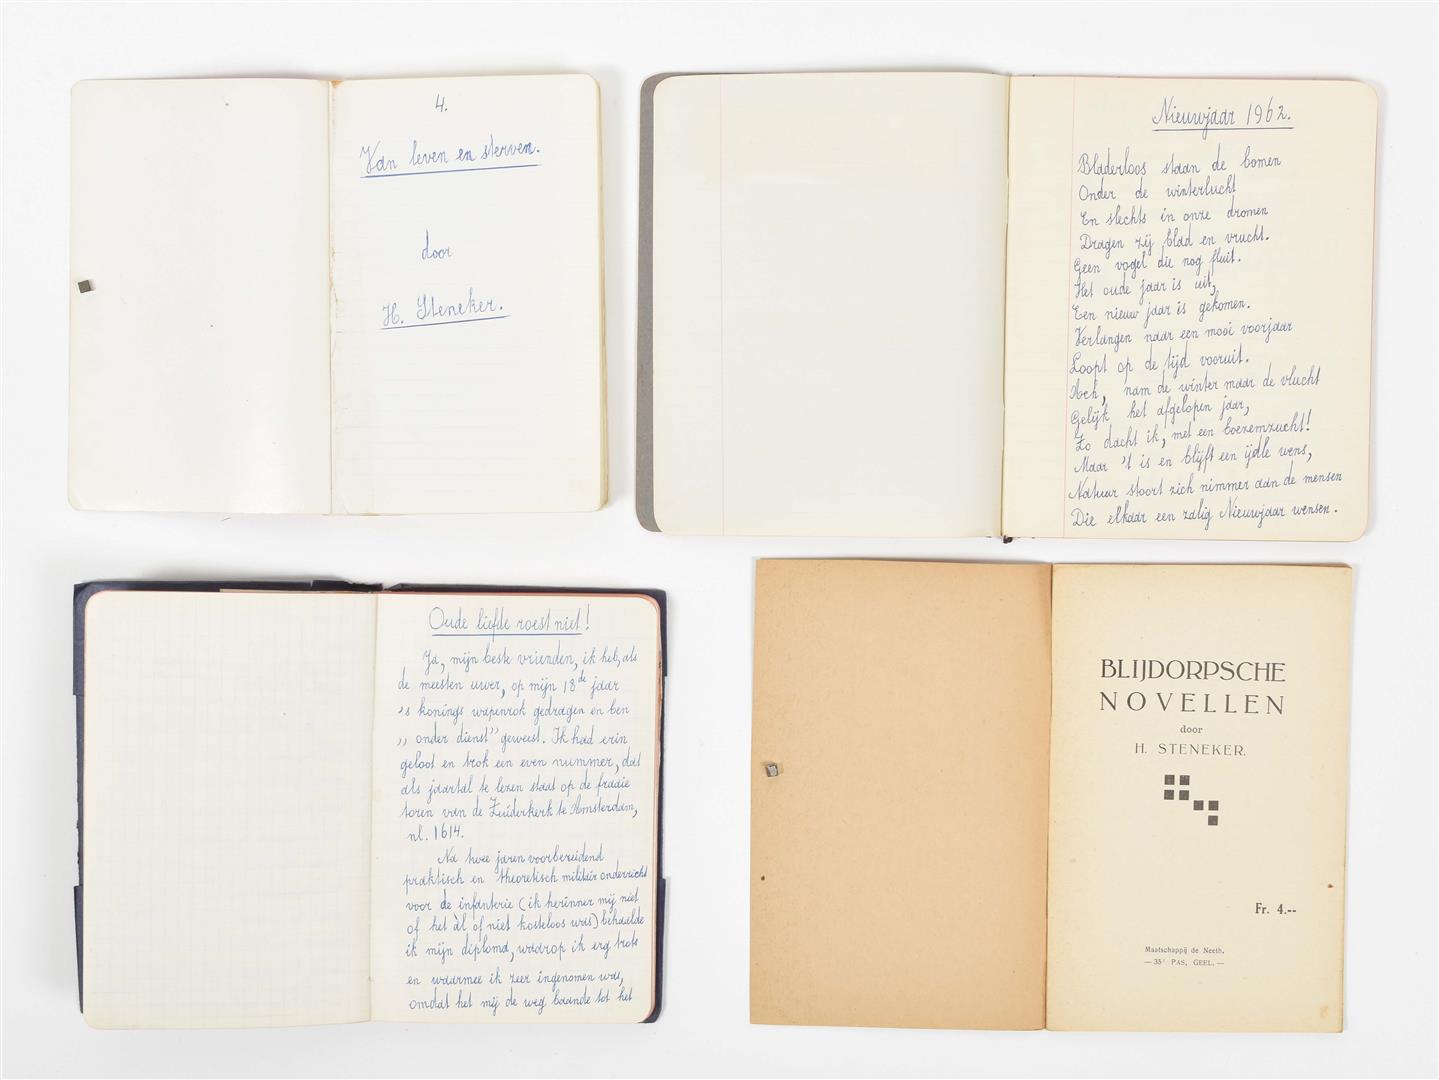 4.
Van leven en sterven.
door
H. Steneker.
Nieuwjaar 1962.
Bladerloos staan de bomen
Onder de winterlucht
En slechts in onze dromen
Dragen zij blad en vrucht.
Geen vogel die nog fluit.
Het oude jaar is uit,
Een nieuw jaar is gekomen.
Verlangen naar een mooi voorjaar
Loopt op de tijd vooruit.
Ach, nam de winter maar de vlucht
Gelijk het afgelopen jaar,
Zo dacht ik, met een boezemzucht!
Maar 't is en blijft een ijdle wens,
Natuur stoort zich nimmer aan de mensen
Die elkaar een zalig Nieuwjaar wensen.
Oude liefde roest niet!
Ja, mijn beste vrienden, ik heb, als
de meesten uwer, op mijn 18de jaar
's konings wapenrok gedragen en ben
,, onder dienst" geweest. Ik had erin
geloot en trok een even nummer, dat
als jaartal te lezen staat op de fraaie
toren van de Zuiderkerk te Amsterdam,
nl. 1614.
Na twee jaren voorbereidend
praktisch en theoretisch militair onderricht
voor de infanterie (ik herinner mij niet
of het àl of niet kosteloos was) behaalde
ik mijn diploma, waarop ik erg trots
en waarmee ik zeer ingenomen was,
omdat het mij de weg baande tot het
BLIJDORPSCHE
NOVELLEN
door
H. STENEKER.
Fr. 4.--
Maatschappij de Neeth.
— 35t PAS, GEEL. —